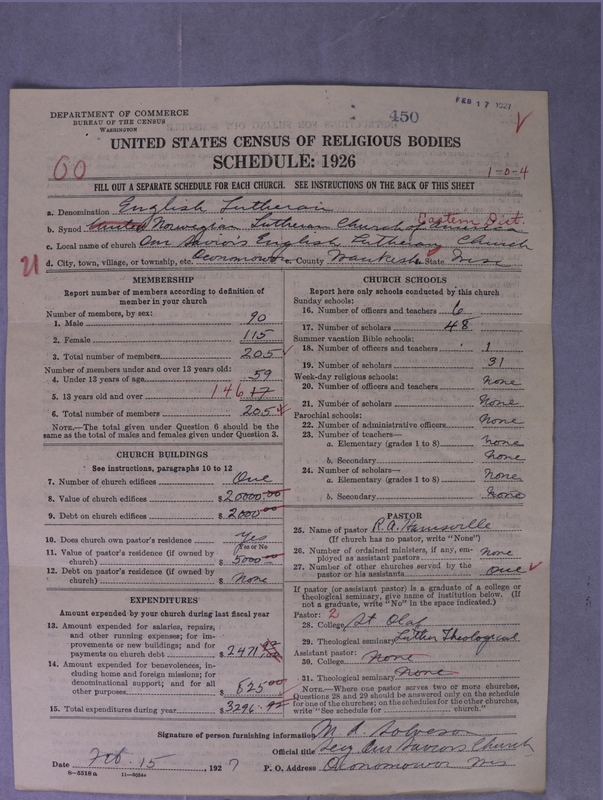 DEPARTMENT OF COMMERCE
BUREAU OF THE CENSUS
WASHINGTON
FEB 17 1927
450
UNITED STATES CENSUS OF RELIGIOUS BODIES
SCHEDULE: 1926
60
1-0-4
FILL OUT A SEPARATE SCHEDULE FOR EACH CHURCH. SEE INSTRUCTIONS ON THE BACK OF THIS SHEET
a. Denomination English Lutheran
Eastern Dist.
b. Synod United Norwegian Lutheran Church of America
c. Local name of church Our Saviors English Lutheran Church
d. City, town, village, or township, etc. Oconomowoc c. County Waukesha State Wisc
MEMBERSHIP
Report number of members according to definition of member in your church
Number of members, by sex:
1. Male 90
2. Female 115
3. Total number of members 205
Number of members under and over 13 years old:
4. Under 13 years of age 59
5. 13 years old and over 146 17
6. Total number of members 205
NOTE.—The total given under Question 6 should be the same as the total of males and females given under Question 3.
CHURCH BUILDINGS
See instructions, paragraphs 10 to 12
7. Number of church edifices One
8. Value of church edifices $ 20000.00
9. Debt on church edifices $ 2000.00
10. Does church own pastor's residence? Yes
Yes or No
11. Value of pastor's residence (if owned by church) $ 5000.00
12. Debt on pastor's residence (if owned by church) $ None
EXPENDITURES
Amount expended by your church during last fiscal year
13. Amount expended for salaries, repairs, and other running expenses; for improvements or new buildings; and for payments on church debt $ 2471
14. Amount expended for benevolences, including home and foreign missions; for denominational support; and for all other purposes $ 825.00
15. Total expenditures during year $ 3296.92
CHURCH SCHOOLS
Report here only schools conducted by this church
Sunday schools:
16. Number of officers and teachers 6
17. Number of scholars 48
Summer vacation Bible schools:
18. Number of officers and teachers 1
19. Number of scholars 31
Week-day religious schools:
20. Number of officers and teachers None
21. Number of scholars None
Parochial schools:
22. Number of administrative officers None
23. Number of teachers—
a. Elementary (grades 1 to 8) None
b. Secondary None
24. Number of scholars—
a. Elementary (grades 1 to 8) None
b. Secondary None
PASTOR
25. Name of pastor R.A.
(If church has no pastor, write "None")
26. Number of ordained ministers, if any, employed as assistant pastors None
27. Number of other churches served by the pastor or his assistants One
If pastor (or assistant pastor) is a graduate of a college or theological seminary, give name of institution below. (If not a graduate, write "No" in the space indicated.)
Pastor: 2
28. College St Olaf
29. Theological seminary Luther Theological
Assistant pastor:
30. College None
31. Theological seminary None
NOTE.—Where one pastor serves two or more churches, Questions 28 and 29 should be answered only on the schedule for one of the churches; on the schedules for the other churches, write "See schedule for church."
Signature of person furnishing information M A Solveson
Official title Secy Our Saviors Church
Date Feb. 15, 1927 P. O. Address Oconomowoc Wis